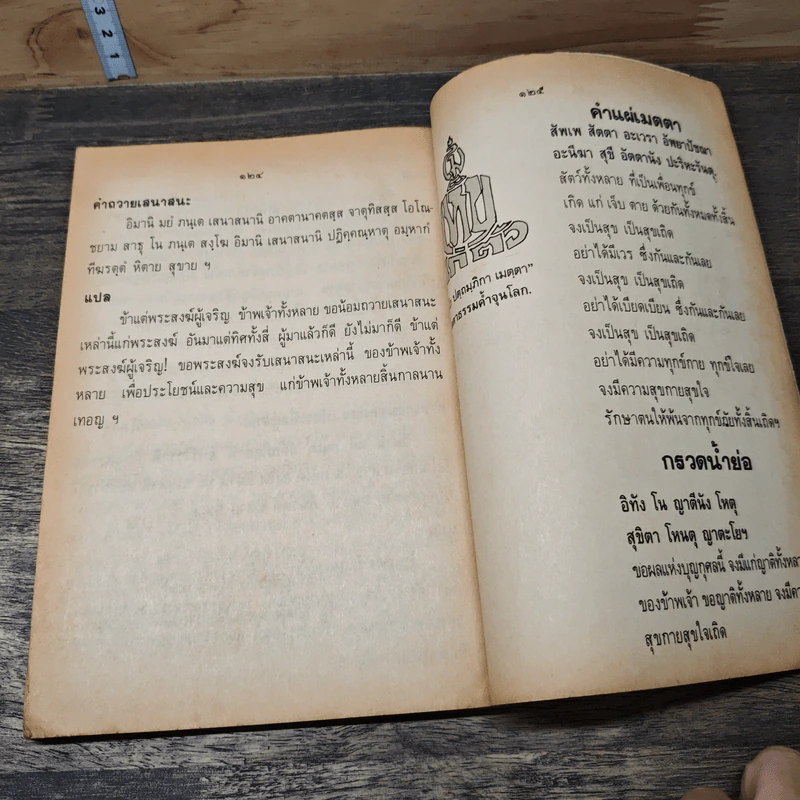 3
2
1
๑๒๔
คำถวายเสนาสนะ
อิมานิ มยํ ภนฺเต เสนาสนานิ อาคตานาคตสฺส จาตุทิสสฺส โอโณ-
ชยาม สาธุ โน ภนฺเต สงฺโฆ อิมานิ เสนาสนานิ ปฏิคฺคณฺหาตุ อมฺหากํ
ทีฆรตฺตํ หิตาย สุขาย ฯ
แปล
ข้าแต่พระสงฆ์ผู้เจริญ ข้าพเจ้าทั้งหลาย ขอน้อมถวายเสนาสนะ
เหล่านี้แก่พระสงฆ์ อันมาแต่ทิศทั้งสี่ ผู้มาแล้วก็ดี ยังไม่มาก็ดี ข้าแต่
พระสงฆ์ผู้เจริญ! ขอพระสงฆ์จงรับเสนาสนะเหล่านี้ ของข้าพเจ้าทั้ง
หลาย เพื่อประโยชน์และความสุข แก่ข้าพเจ้าทั้งหลายสิ้นกาลนาน
เทอญ ฯ
๑๒๕
ปตฺถมฺภิกา เมตฺตา”
ธรรมค้ำจุนโลก.
คำแผ่เมตตา
สัพเพ สัตตา อะเวรา อัพยาปัชฌา
อะนีฆา สุขี อัตตานัง ปะริหะรันตุ.
สัตว์ทั้งหลาย ที่เป็นเพื่อนทุกข์
เกิด แก่ เจ็บ ตาย ด้วยกันทั้งหมดทั้งสิ้น
จงเป็นสุข เป็นสุขเถิด
อย่าได้มีเวร ซึ่งกันและกันเลย
จงเป็นสุข เป็นสุขเถิด
อย่าได้เบียดเบียน ซึ่งกันและกันเลย
จงเป็นสุข เป็นสุขเถิด
อย่าได้มีความทุกข์กาย ทุกข์ใจเลย
จงมีความสุขกายสุขใจ
รักษาตนให้พ้นจากทุกข์ภัยทั้งสิ้นเถิดฯ
กรวดน้ำย่อ
อิทัง โน ญาตีนัง โหตุ
สุขิตา โหนตุ ญาตะโยฯ
ขอผลแห่งบุญกุศลนี้ จงมีแก่ญาติทั้งหลา
ของข้าพเจ้า ขอญาติทั้งหลาย จงมีคว
สุขกายสุขใจเถิด